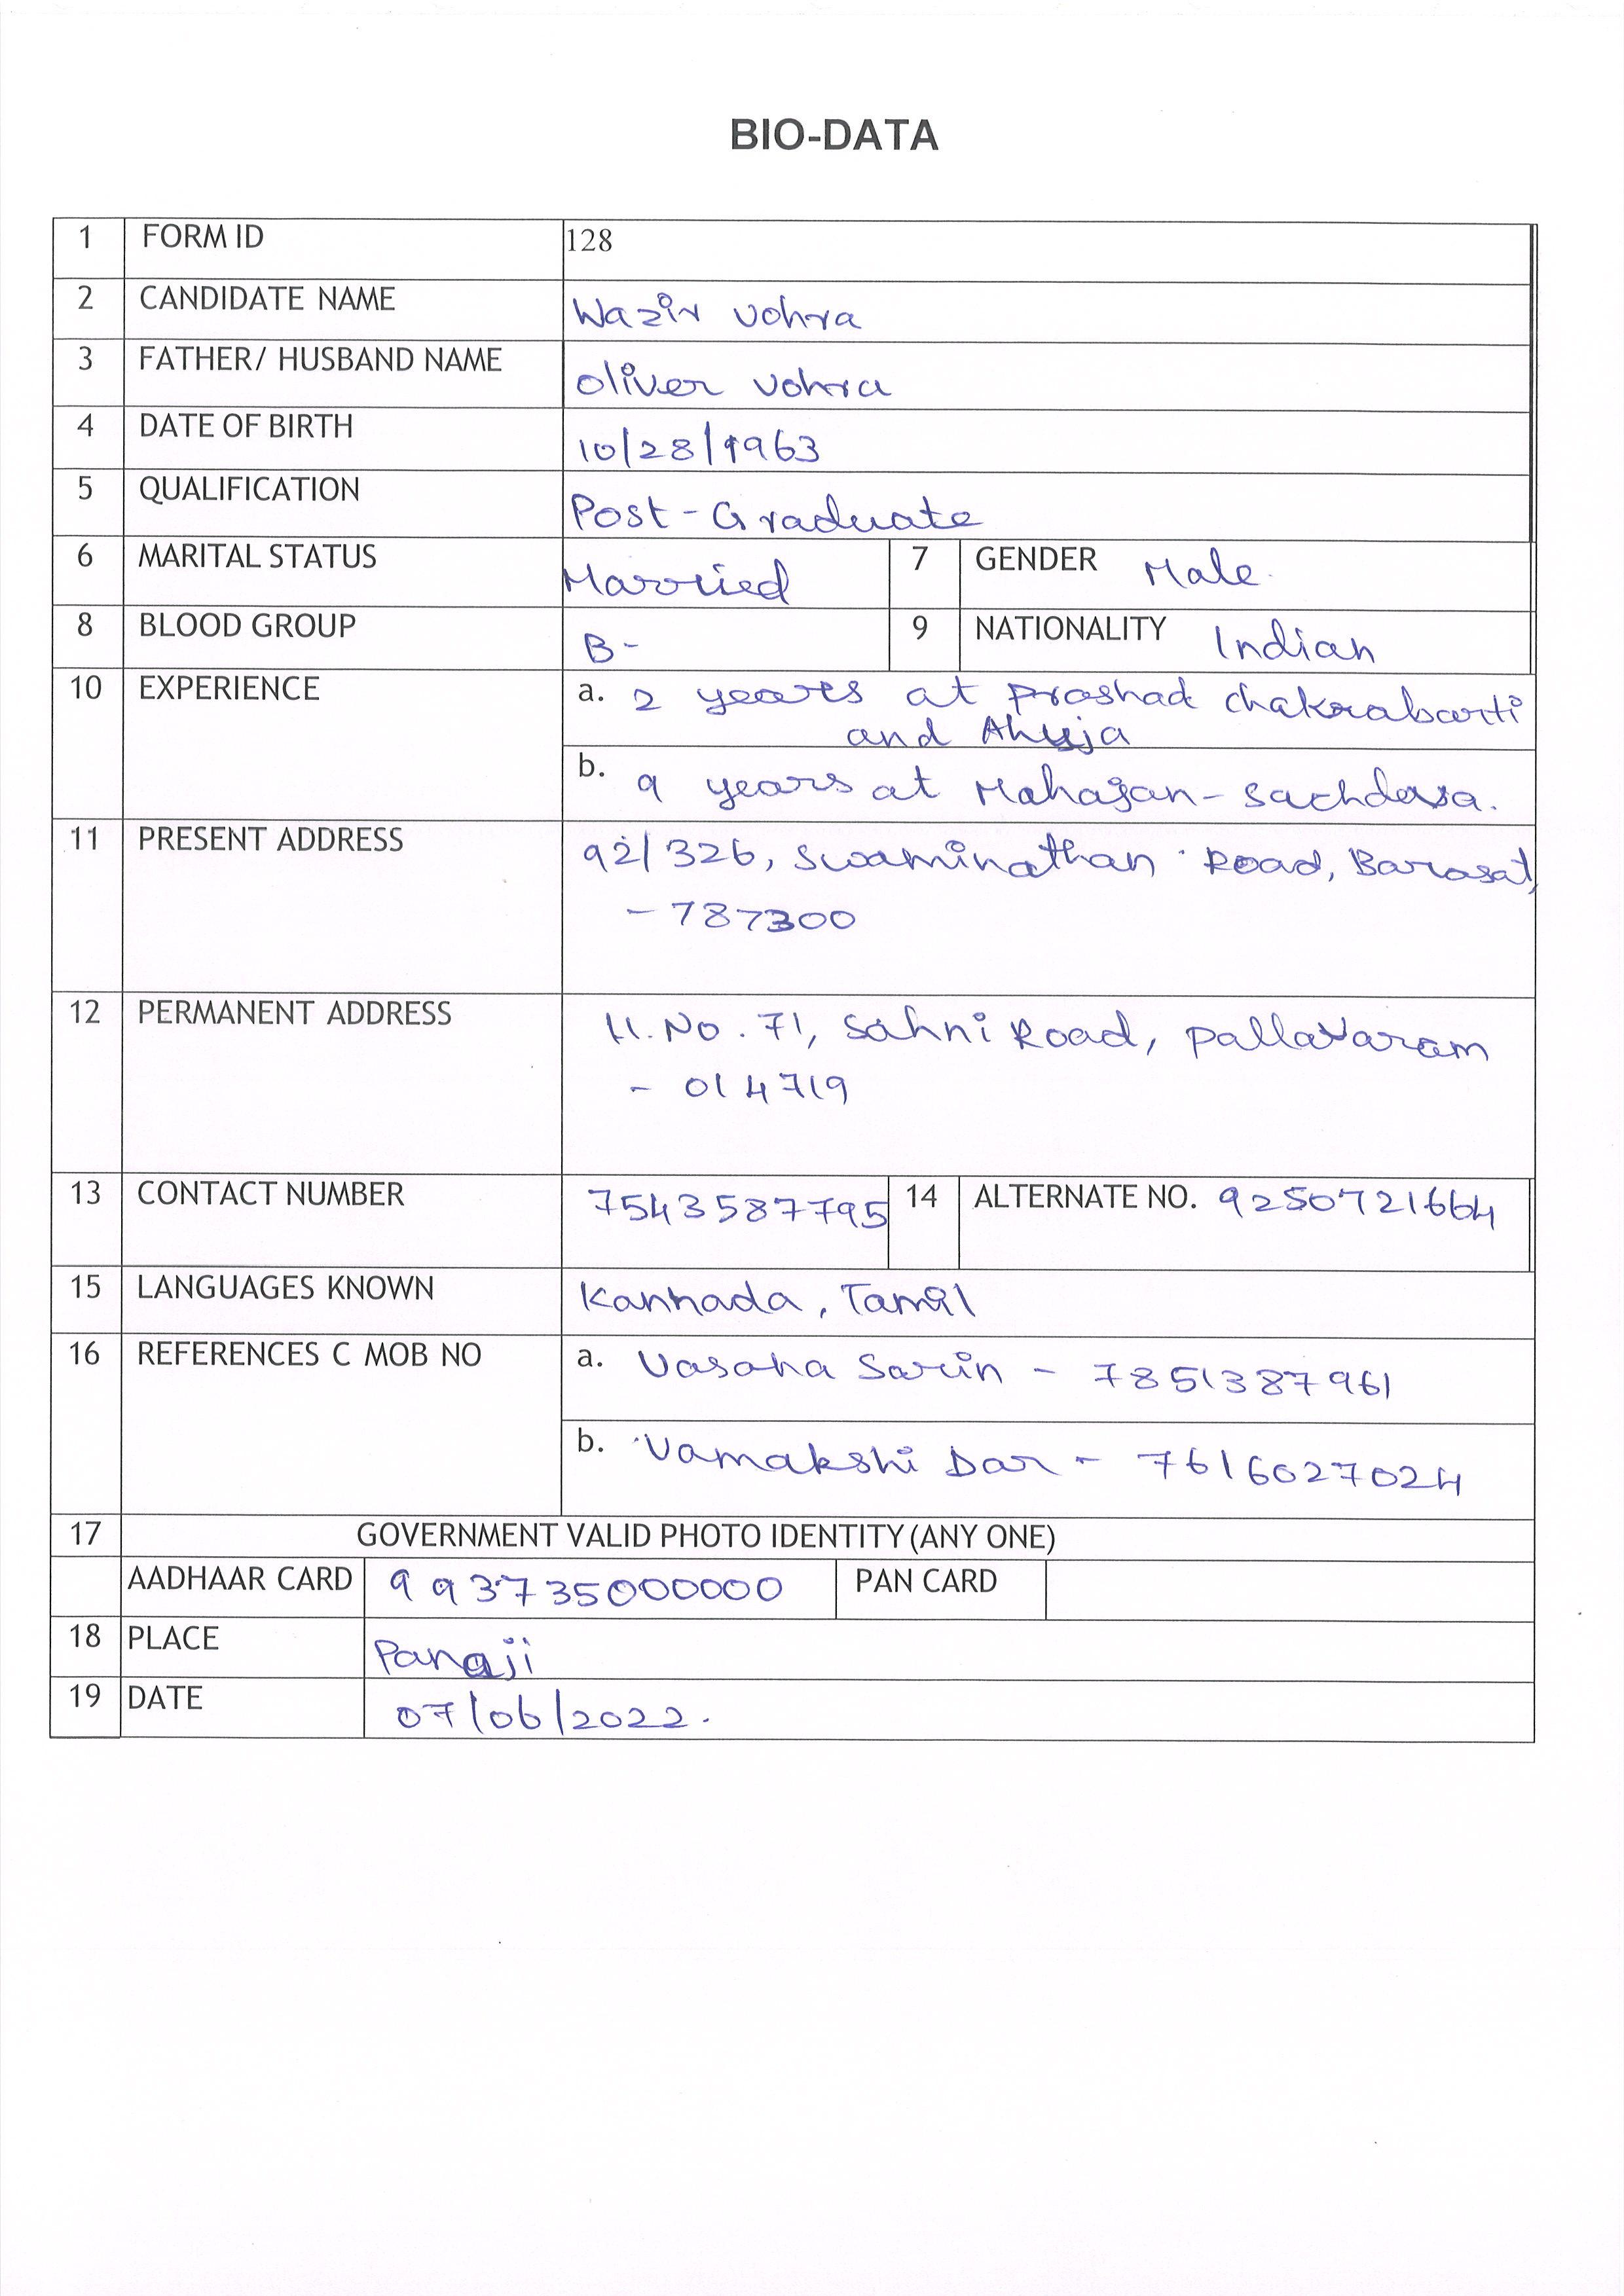 BIO-DATA
1 FORM ID 128
2 CANDIDATE NAME Wazir Vohra
3 FATHER/ HUSBAND NAME Oliver Vohra
4 DATE OF BIRTH 10/28/1963
5 QUALIFICATION Post-Graduate
6 MARITAL STATUS Married 7 GENDER Male
8 BLOOD GROUP B- 9 NATIONALITY Indian
10 EXPERIENCE a. 2 years at Prashad Chakrabarti
and Ahuja
b. 9 years at Mahajan-Sachdeva.
11 PRESENT ADDRESS 92/326, Swaminathan Road, Barasat,
- 787300
12 PERMANENT ADDRESS H.No. 71, Sahni Road, Pallavaram
- 014719
13 CONTACT NUMBER 7543587795 14 ALTERNATE NO. 9250721664
15 LANGUAGES KNOWN Kannada, Tamil
16 REFERENCES C MOB NO a. Vasana Sarin - 7851387961
b. Vamakshi Dar - 7616027024
17 GOVERNMENT VALID PHOTO IDENTITY (ANY ONE)
AADHAAR CARD 993735000000 PAN CARD
18 PLACE Panaji
19 DATE 07/06/2022.